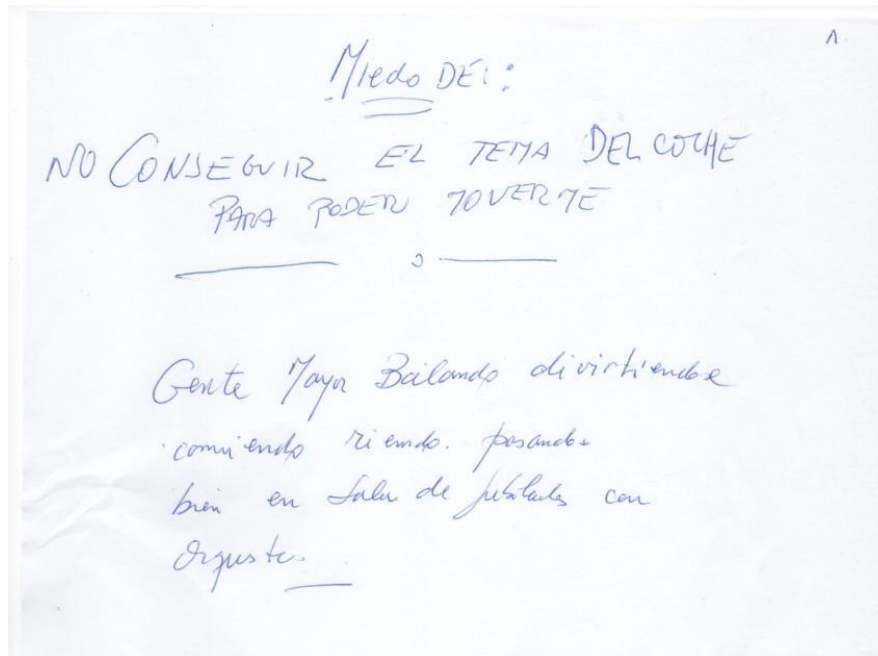 1.
Miedo DE:
NO CONSEGUIR EL TEMA DEL COCHE
PARA PODER MOVERME
Gente Mayor Bailando divirtiendose
comiendo riendo. pasando
bien en Sala de jubilados con
Orquesta